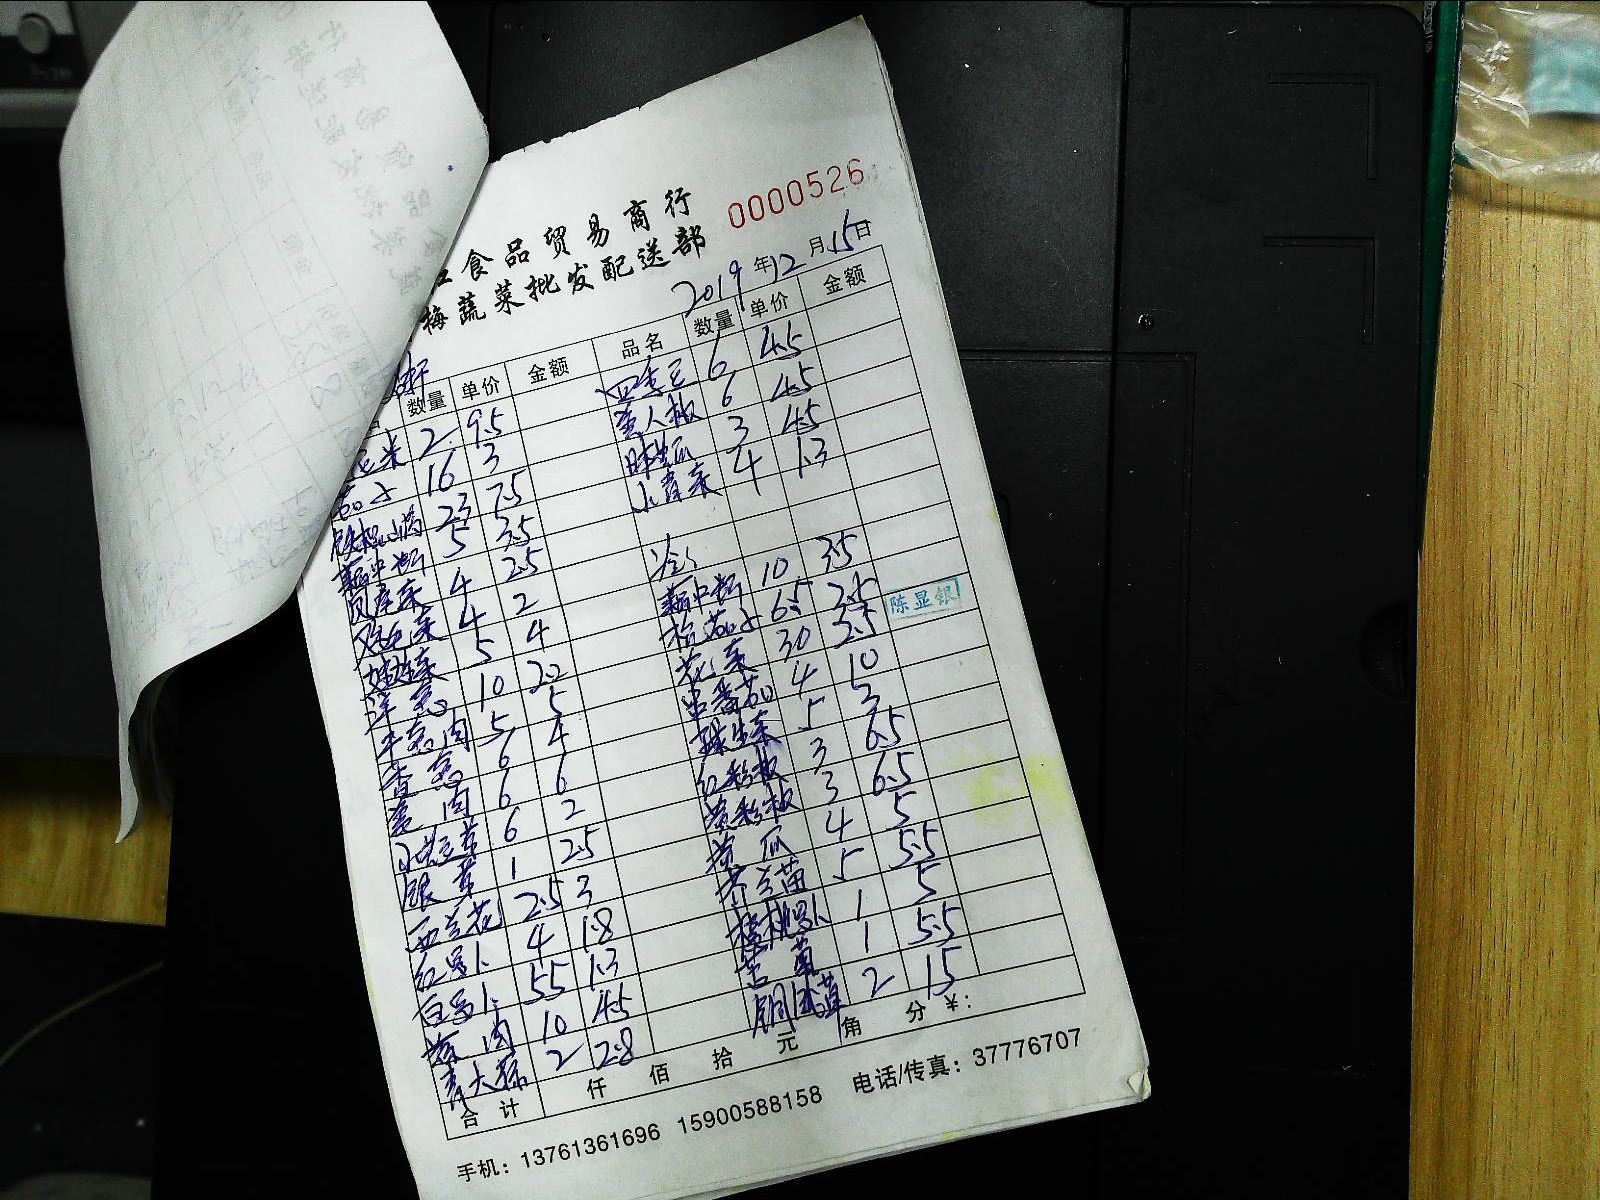 0000526
食品贸易商行
梅蔬菜批发配送部
2019年12月15日
数量 单价 金额 品名 数量 单价 金额
米 2 9.5 四季豆 6 4.5
茄子 16 3 人椒 6 4.5
铁棍山药 23 7.5 3 4.5
藕中断 5 3.5 小青菜 4 1.3
4 2.5
4 2
娃娃菜 5 4 藕中断 10 3.5
洋葱 10 2.2 茄子 6.5 2.5
牛 肉 5 5 花菜 30 2.5
香葱 6 4 番茄 4 10
姜肉 6 6 球生菜 5 3
6 2 红彩椒 3 6.5
银芽 1 2.5 黄彩椒 3 6.5
西兰花 2.5 3 黄瓜 4 5
红罗卜 4 1.8 芥兰苗 5 5.5
白罗卜 5.5 1.3 樱桃罗卜 1 5
肉 10 4.5 1 5.5
青大 2 2.8 2 15
合计 仟 佰 拾 元 角 分 ¥:
手机：13761361696 15900588158 电话/传真：37776707
陈显银